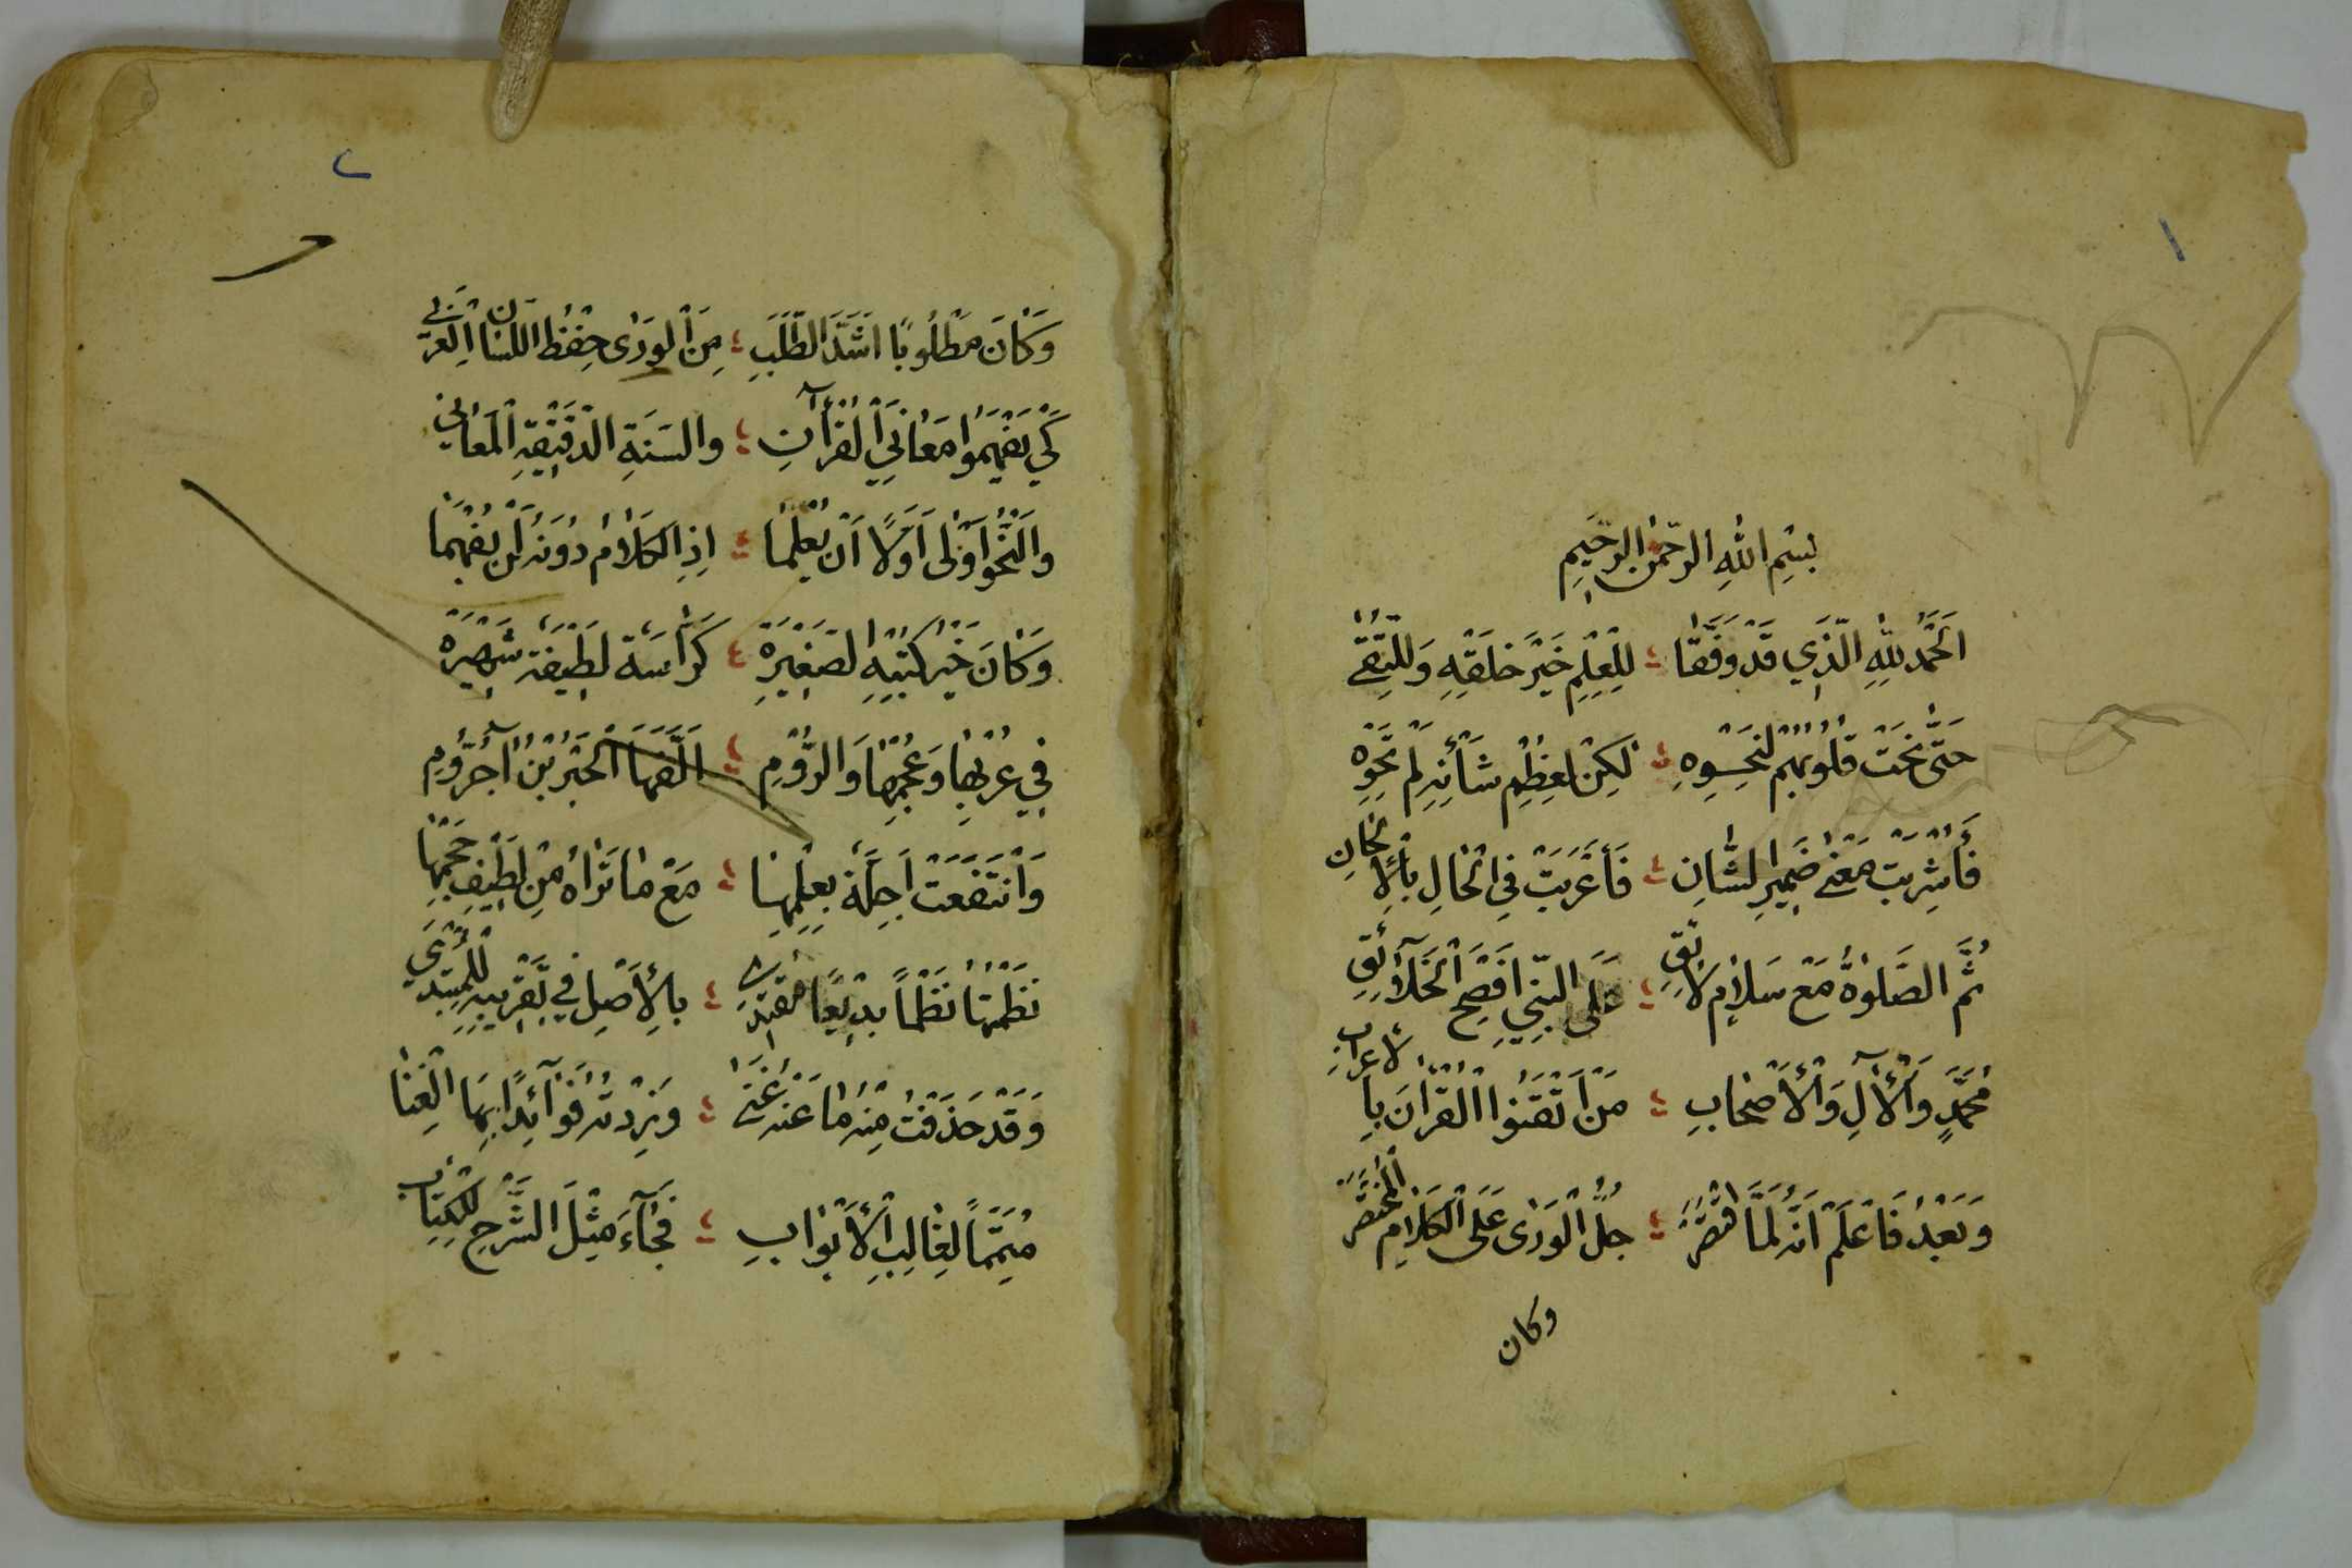 ١
بِسْمِ اللهِ الرَّحْمٰنِ الرَّحِيمِ
اَلْحَمْدُ لِلّٰهِ الَّذِي قَدْ وَفَّقَا ؛ لِلْعِلْمِ خَيْرَ خَلْقِهِ وَلِلتُّقَى
حَتَّى نَحَتْ قُلُوبُهُمْ لِنَحْوِهِ ؛ لٰكِنْ لِعِظْمِ شَأْنِهِ لَمْ تَحْوِهِ
فَأُشْرِبَتْ مَعْنَى ضَمِيرِ الشَّانِ ؛ فَأَعْرَبَتْ فِي الْحَالِ بِالْأَلْحَانِ
ثُمَّ الصَّلٰوةُ مَعْ سَلَامٍ لَائِقِ ؛ عَلَى النَّبِيِّ اَفْصَحِ الْخَلَآئِقِ
مُحَمَّدٍ وَالْآلِ وَالْأَصْحَابِ ؛ مَنْ اَتْقَنُوا الْقُرْآنَ بِالْاِعْرَابِ
وَبَعْدُ فَاعْلَمْ اَنَّهُ لَمَّا اقْتَصَرْ ؛ جُلُّ الْوَرٰى عَلَى الْكَلَامِ الْمُخْتَصَرْ
وكان
٢
وَكَانَ مَطْلُوبًا اَشَدَّ الطَّلَبِ ؛ مِنَ الْوَرٰى حِفْظُ اللِّسَانِ الْعَرَبِي
كَيْ يَفْهَمُوا مَعَانِيَ الْقُرْآنِ ؛ وَالسُّنَةِ الدَّقِيقَةِ الْمَعَانِي
وَالنَّحْوُ اَوْلٰى اَوَّلًا اَنْ يُعْلَمَا ؛ اِذِ الْكَلَامُ دُونَهُ لَنْ يُفْهَمَا
وَكَانَ خَيْرُ كُتْبِهِ الصَّغِيرَةْ ؛ كُرَّاسَةً لَطِيفَةً شَهِيرَةْ
فِي عُرْبِهَا وَعُجْمِهَا وَالرُّومِ ؛ اَلَّفَهَا الْحَبْرُ بْنُ آجُرُّومِ
وَانْتَفَعَتْ اَجِلَّةٌ بِعِلْمِهَا ؛ مَعْ مَا تَرَاهُ مِنْ لَطِيفِ حَجْمِهَا
نَظَمْتُهَا نَظْمًا بَدِيعًا مُقْتَدِي ؛ بِالْأَصْلِ فِي تَقْرِيبِهِ لِلْمُبْتَدِي
وَقَدْ حَذَفْتُ مِنْهُ مَا عَنْهُ غِنَى ؛ وَزِدْتُهُ فَوَآئِدًا بِهَا الْغِنَا
مُتَمِّمًا لِغَالِبِ الْأَبْوَابِ ؛ فَجَآءَ مِثْلَ الشَّرْحِ لِلْكِتَابِ